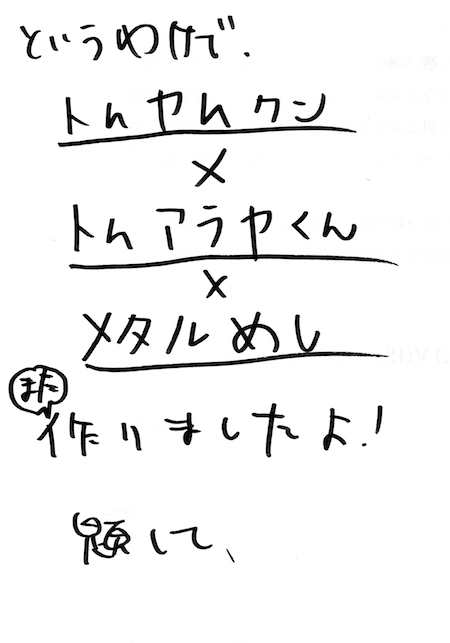 というわけで、
トムヤムクン
×
トムアラヤくん
×
メタルめし
また
作りましたよ!
題して、